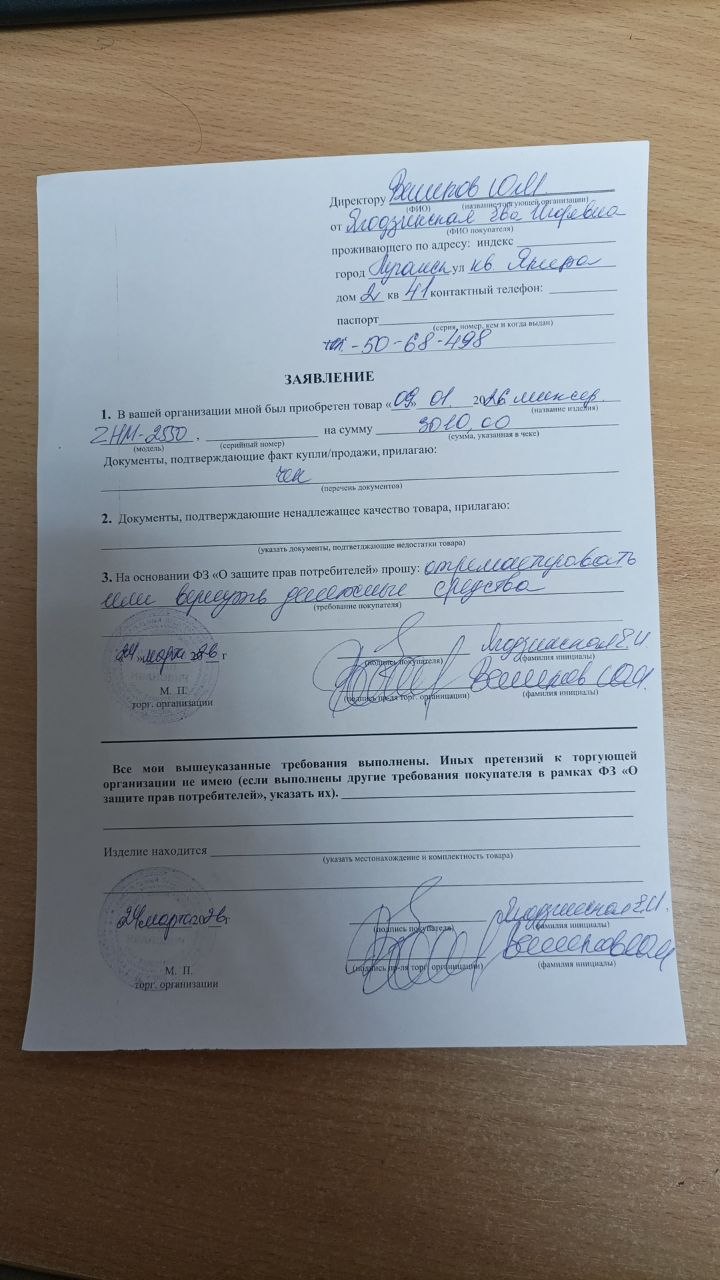 Директору Вешиков Ю.И.
(ФИО) (название торгующей организации)
от Ягодзинская Ева Игоревна
(ФИО покупателя)
проживающего по адресу: индекс
город Луганск ул кв. Якира
дом 2 кв 41 контактный телефон:
паспорт
(серия, номер, кем и когда выдан)
-50-68-498
ЗАЯВЛЕНИЕ
1. В вашей организации мной был приобретен товар «09» 01. 2026 миксер.
(название изделия)
ZHM-2550, на сумму 3010,00
(модель) (серийный номер) (сумма, указанная в чеке)
Документы, подтверждающие факт купли/продажи, прилагаю:
чек
(перечень документов)
2. Документы, подтверждающие ненадлежащее качество товара, прилагаю:
(указать документы, подтветджающие недостатки товара)
3. На основании ФЗ «О защите прав потребителей» прошу: отремонтировать
или вернуть денежные средства
(требование покупателя)
«24» марта 2026 г Ягодзинская Е.И.
(подпись покупателя) (фамилия инициалы)
Вешиков Ю.И.
М. П. (подпись пр-ля торг. организации) (фамилия инициалы)
торг. организации
Все мои вышеуказанные требования выполнены. Иных претензий к торгующей
организации не имею (если выполнены другие требования покупателя в рамках ФЗ «О
защите прав потребителей», указать их).
Изделие находится
(указать местонахождение и комплектность товара)
«24» марта 2026 г. Ягодзинская Е.И.
(подпись покупателя) (фамилия инициалы)
Вешиков Ю.И.
(подпись пр-ля торг организации) (фамилия инициалы)
М. П.
торг. организации